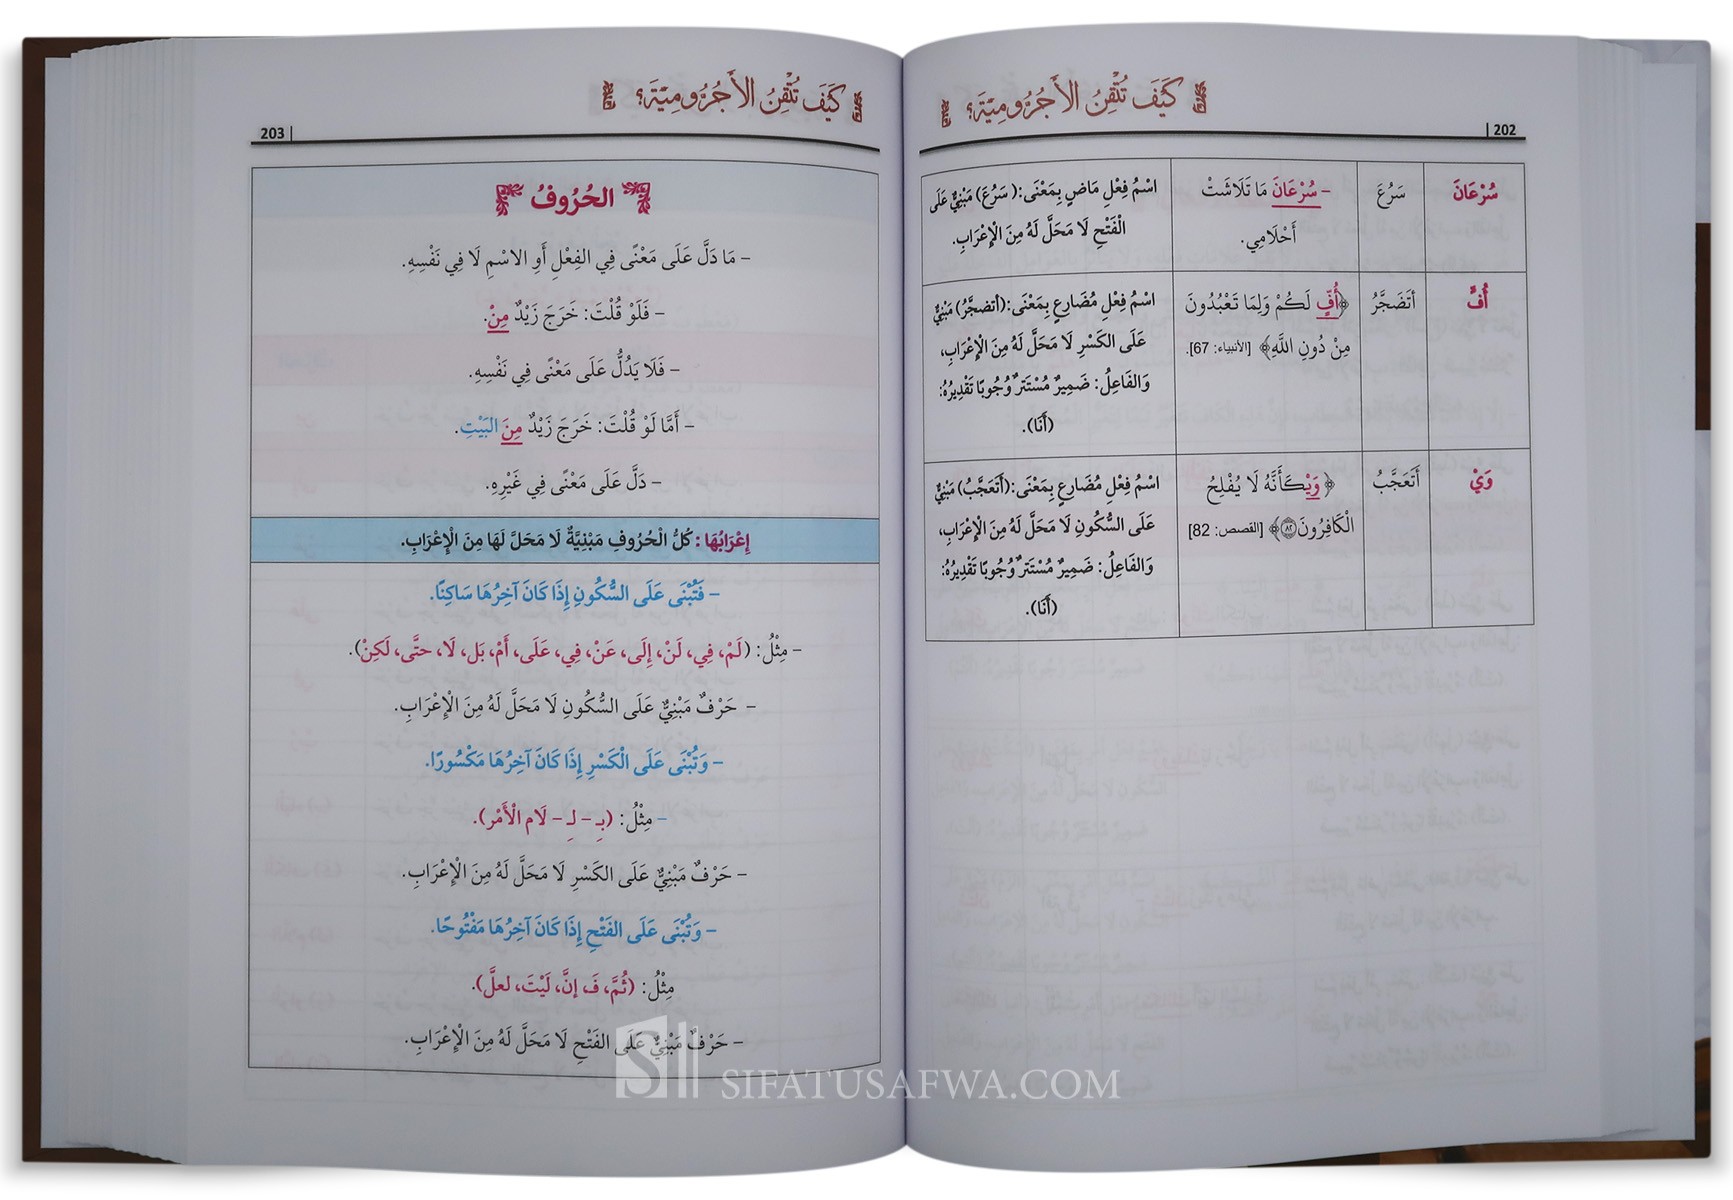 كَيْفَ تُتْقِنُ الأَجُرُّومِيَّةَ؟
202
سُرْعَانَ
سَرُعَ
– سُرْعَانَ مَا تَلَاشَتْ
أَحْلَامِي.
اسْمُ فِعْلِ مَاضٍ بِمَعْنَى: (سَرُعَ) مَبْنِيٌّ عَلَى
الْفَتْحِ لَا مَحَلَّ لَهُ مِنَ الْإِعْرَابِ.
أُفٍّ
أتَضَجَّرُ
﴿أُفٍّ لَكُمْ وَلِمَا تَعْبُدُونَ
مِنْ دُونِ اللَّهِ﴾ [الأنبياء: 67].
اسْمُ فِعْلِ مُضَارِعٍ بِمَعْنَى: (أتضجَّرُ) مَبْنِيٌّ
عَلَى الكَسْرِ لَا مَحَلَّ لَهُ مِنَ الْإِعْرَابِ،
وَالفَاعِلُ: ضَمِيرٌ مُسْتَترٌ وُجُوبًا تَقْدِيرُهُ:
(أَنَا).
وَيْ
أَتَعَجَّبُ
﴿وَيْكَأَنَّهُ لَا يُفْلِحُ
الْكَافِرُونَ ٨٢﴾ [القصص: 82]
اسْمُ فِعْلِ مُضَارِعٍ بِمَعْنَى: (أَتَعَجَّبُ) مَبْنِيٌّ
عَلَى السُّكُونِ لَا مَحَلَّ لَهُ مِنَ الْإِعْرَابِ،
وَالفَاعِلُ: ضَمِيرٌ مُسْتَترٌ وُجُوبًا تَقْدِيرُهُ:
(أَنَا).
كَيْفَ تُتْقِنُ الأَجُرُّومِيَّةَ؟
203
الحُرُوفُ
– مَا دَلَّ عَلَى مَعْنًى فِي الفِعْلِ أَوِ الاسْمِ لَا فِي نَفْسِهِ.
– فَلَوْ قُلْتَ: خَرَجَ زَيْدٌ مِنْ.
– فَلَا يَدُلُّ عَلَى مَعْنًى فِي نَفْسِهِ.
– أَمَّا لَوْ قُلْتَ: خَرَجَ زَيْدٌ مِنَ البَيْتِ.
– دَلَّ عَلَى مَعْنًى فِي غَيْرِهِ.
إِعْرَابُهَا: كُلُّ الْحُرُوفِ مَبْنِيَّةٌ لَا مَحَلَّ لَهَا مِنَ الْإِعْرَابِ.
– فَتُبْنَى عَلَى السُّكُونِ إِذَا كَانَ آخِرُهَا سَاكِنًا.
– مِثْلُ: (لَمْ، فِي، لَنْ، إِلَى، عَنْ، فِي، عَلَى، أَمْ، بَل، لَا، حتَّى، لَكِنْ).
– حَرْفٌ مَبْنِيٌّ عَلَى السُّكُونِ لَا مَحَلَّ لَهُ مِنَ الْإِعْرَابِ.
– وَتُبْنَى عَلَى الْكَسْرِ إِذَا كَانَ آخِرُهَا مَكْسُورًا.
– مِثْلُ: (بِـ – لِـ – لَام الْأَمْر).
– حَرْفٌ مَبْنِيٌّ عَلَى الكَسْرِ لَا مَحَلَّ لَهُ مِنَ الْإِعْرَابِ.
– وَتُبْنَى عَلَى الفَتْحِ إِذَا كَانَ آخِرُهَا مَفْتُوحًا.
مِثْلُ: (ثُمَّ، فَ، إنَّ، لَيْتَ، لعلَّ).
– حَرْفٌ مَبْنِيٌّ عَلَى الفَتْحِ لَا مَحَلَّ لَهُ مِنَ الْإِعْرَابِ.
SIFATUSAFWA.COM